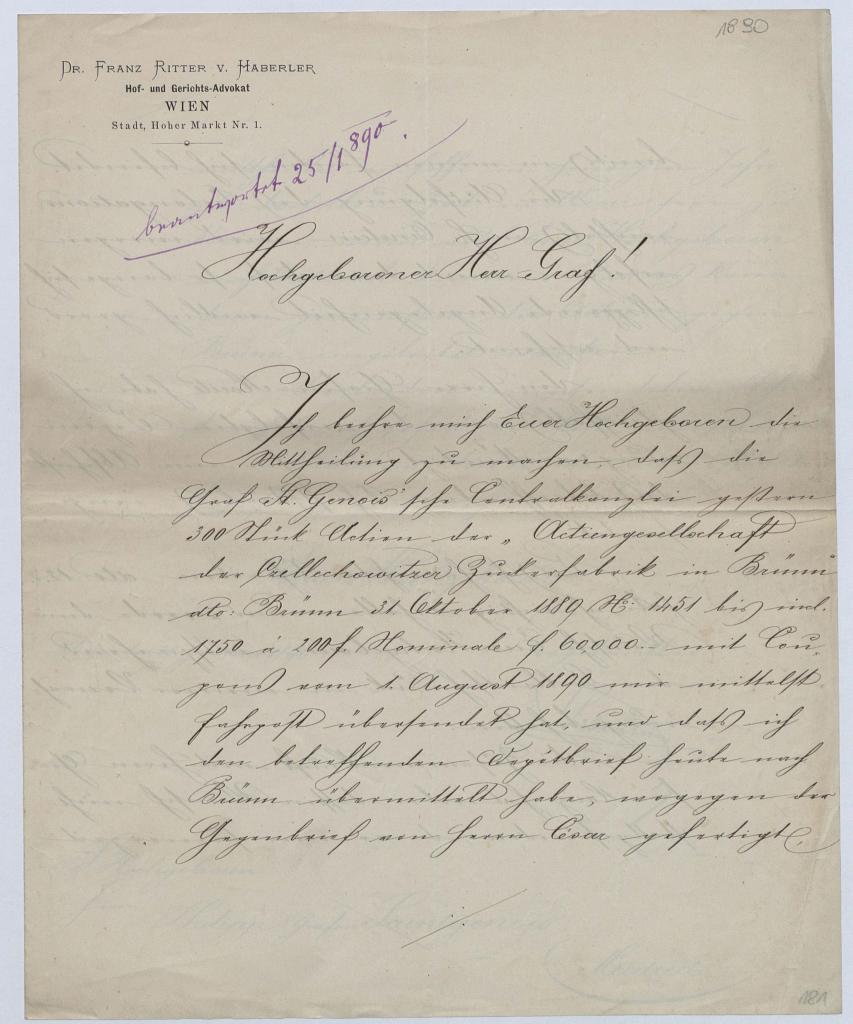 1890
DR. FRANZ RITTER V. HABERLER
Hof- und Gerichts-Advokat
WIEN
Stadt, Hoher Markt Nr. 1.
beantwortet 25/1 890.
Hochgeborener Herr Graf!
Ich beehre mich Euer Hochgeboren die
Mittheilung zu machen, dass die
Graf St. Genois'sche Centralkanzlei gestern
300 Stück Actien der „Actiengesellschaft
der Czellechowitzer Zuckerfabrik in Brünn"
dto: Brünn 31. Oktober 1889 No: 1451 bis incl.
1750 á 200 f. Nominale f. 60,000.- mit Cou-
pons vom 1. August 1890 mir mittelst
Fahrpost übersendet hat, und dass ich
den betreffenden Depôtbrief heute nach
Brünn übermittelt habe, wogegen der
Gegenbrief von Herrn César gefertigt,
./.
181